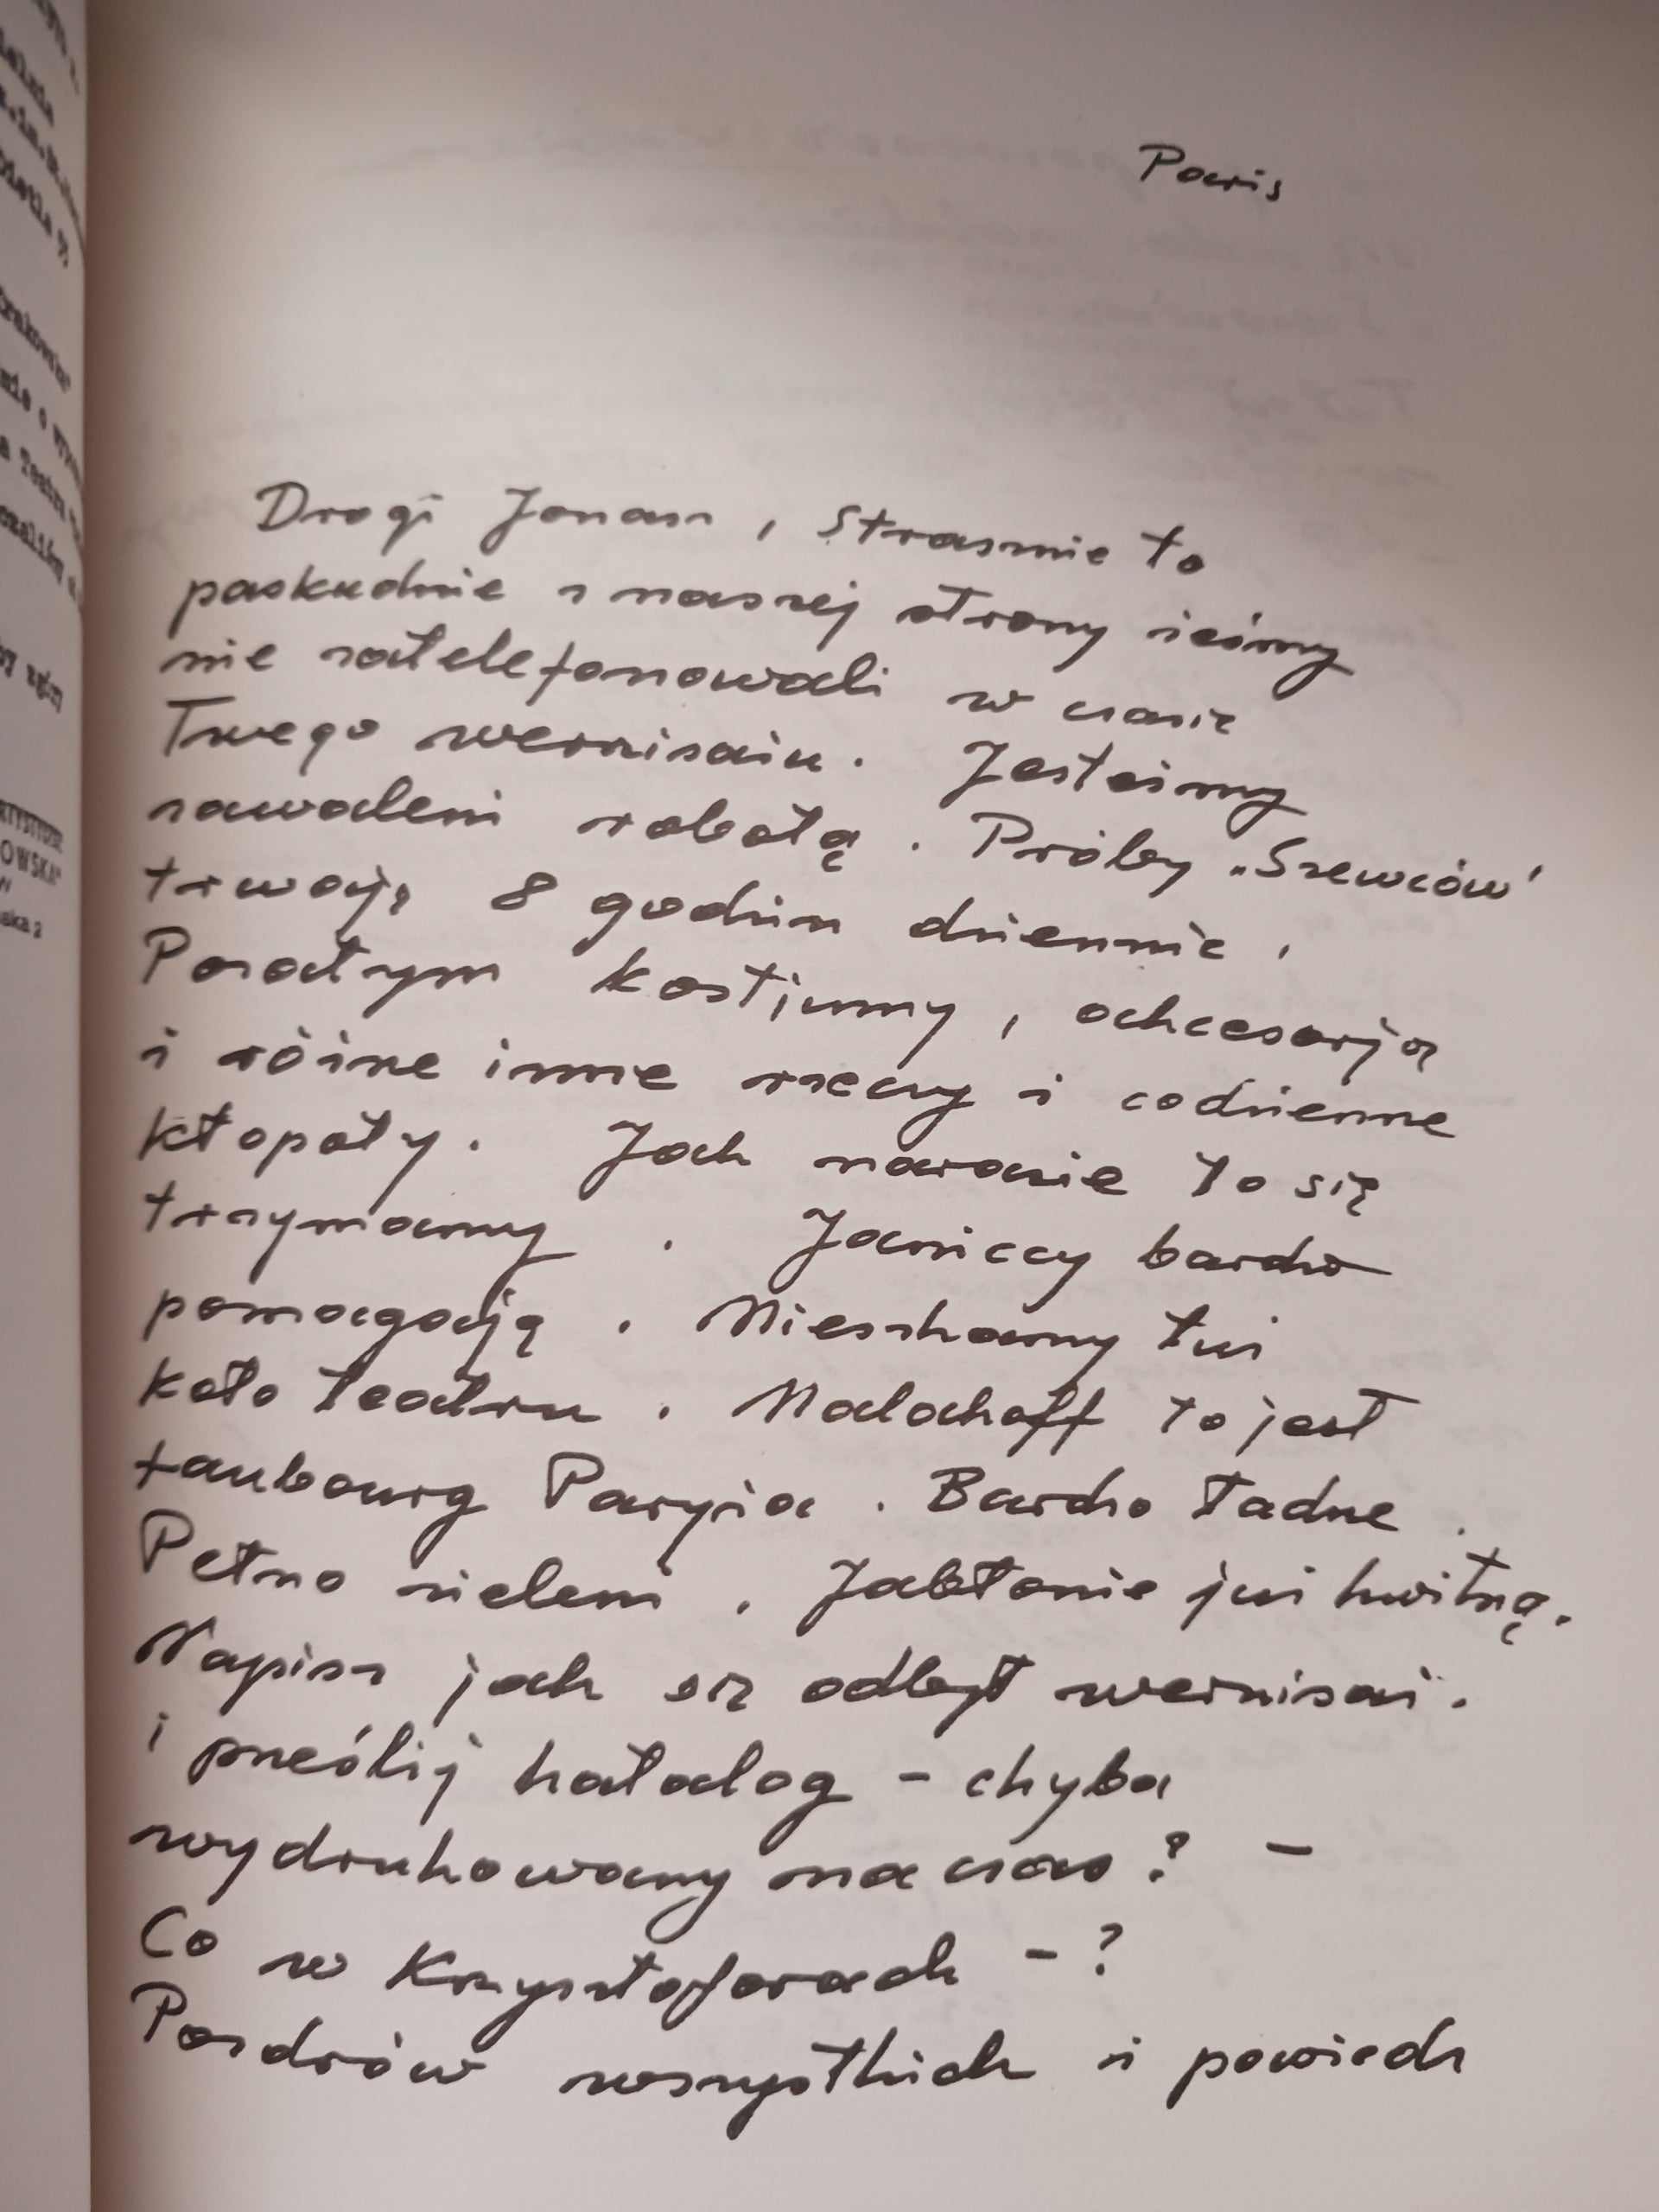 Paris
Drogi Jonasz, Strasznie to
paskudnie z naszej strony żeśmy
nie zatelefonowali w czasie
Twego wernisażu. Jesteśmy
zawaleni robotą. Próby „Szewców"
trwają 8 godzin dziennie,
Pozatym kostjumy, akcesorja
i różne inne rzeczy i codzienne
kłopoty. Jak narazie to się
trzymamy. Janiccy bardzo
pomagają. Mieszkamy tuż
koło teatru. Malakoff to jest
faubourg Paryża. Bardzo ładne.
Pełno zieleni, Jabłonie już kwitną.
Napisz jak się odbył wernisaż.
i prześlij katalog – chyba
wydrukowany na czas? –
Co w Krzysztoforach – ?
Pozdrów wszystkich i powiedz